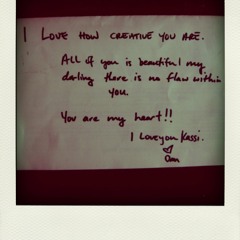 I LOVE HOW CREATIVE YOU ARE.
ALL of you is beautiful my
darling there is no flaw within
YOU.
You are my heart!!
I Love you Kassi.